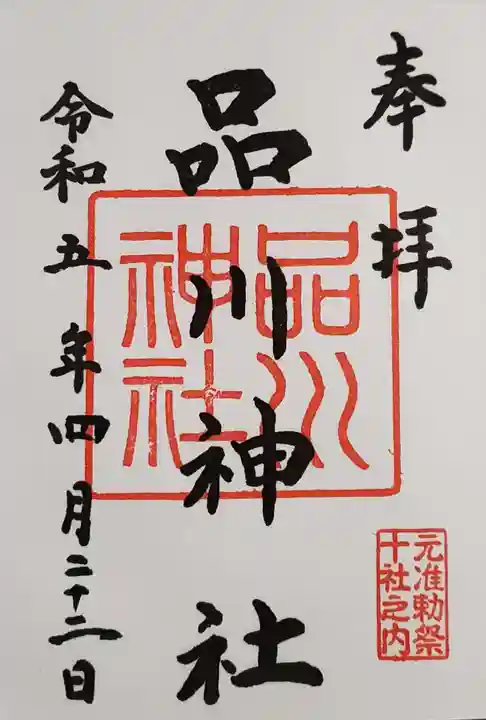 奉拝
品川神社
品川
神社
令和五年四月二十二日
元准勅祭
十社之内